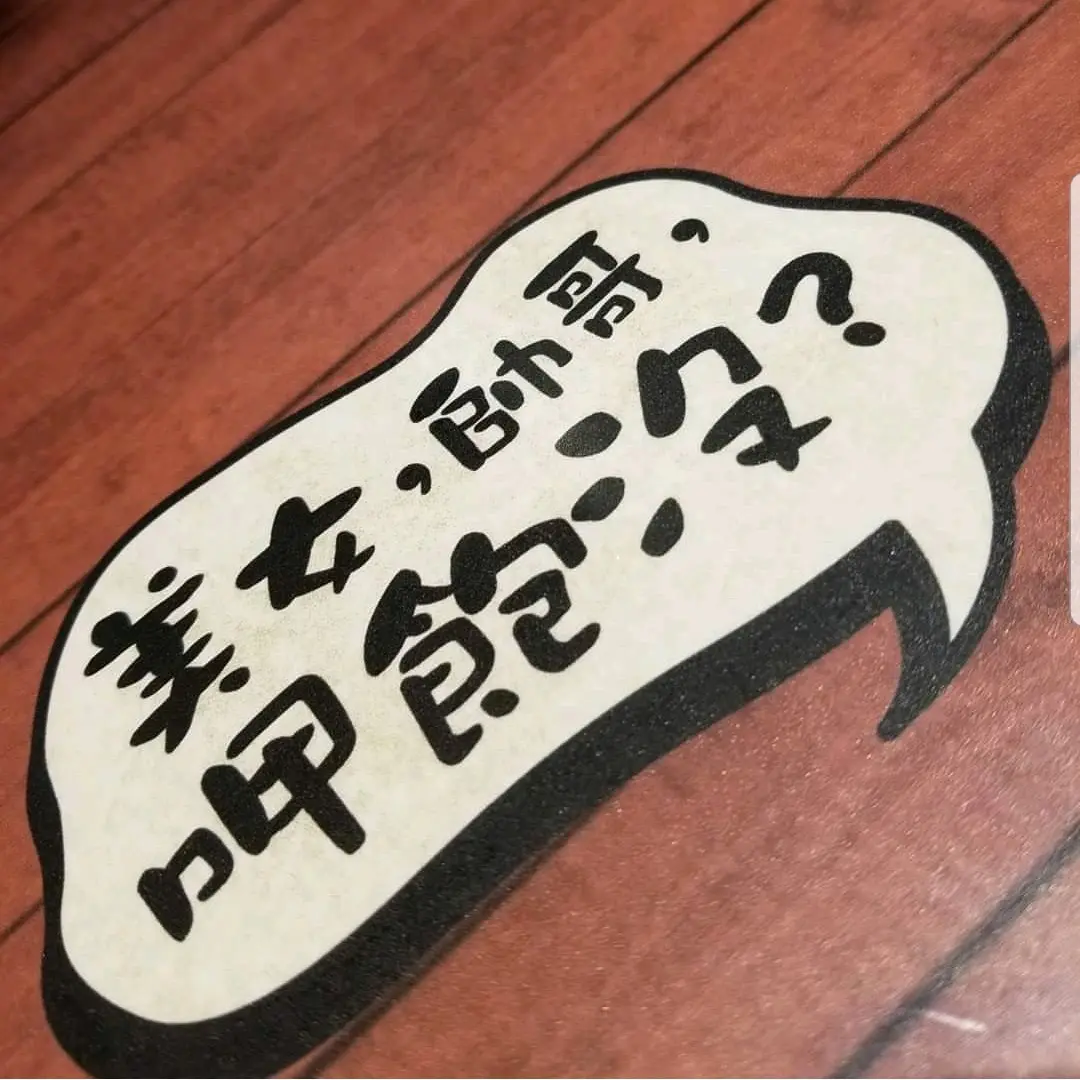 美女,帥哥,
呷飽沒?